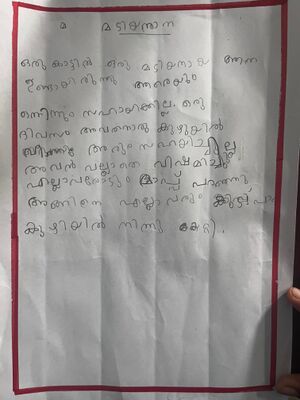 മ മടിയനാന
ഒരു കാട്ടിൽ ഒരു മടിയനായ ആന
ഉണ്ടായിരുന്നു ആരെയും
ഒന്നിനും സഹായിക്കില്ല. ഒരു
ദിവസം അവനൊരു കുഴുയിൽ
വീണു ആരും സഹായിച്ചില്ല
അവൻ വല്ലാതെ വിഷമിച്ചു
എല്ലാവരോടും മാപ്പ് പറഞ്ഞു
അങ്ങിനെ എല്ലാവരും കൂട്ടി
കുഴിയിൽ നിന്നു കേറ്റി.